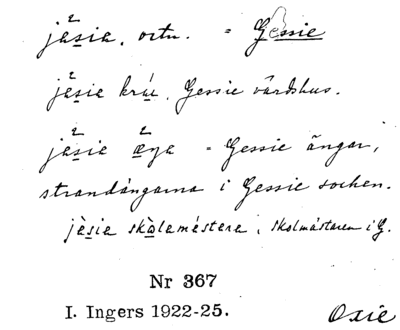 jäsia, ortn. = Gessie
jäsie krá, Gessie värdshus.
jäsie æŋa = Gessie ängar,
strandängarna i Gessie socken.
jèsia skòlaméstera, skolmästaren i G.
Nr 367
I. Ingers 1922-25. Oxie